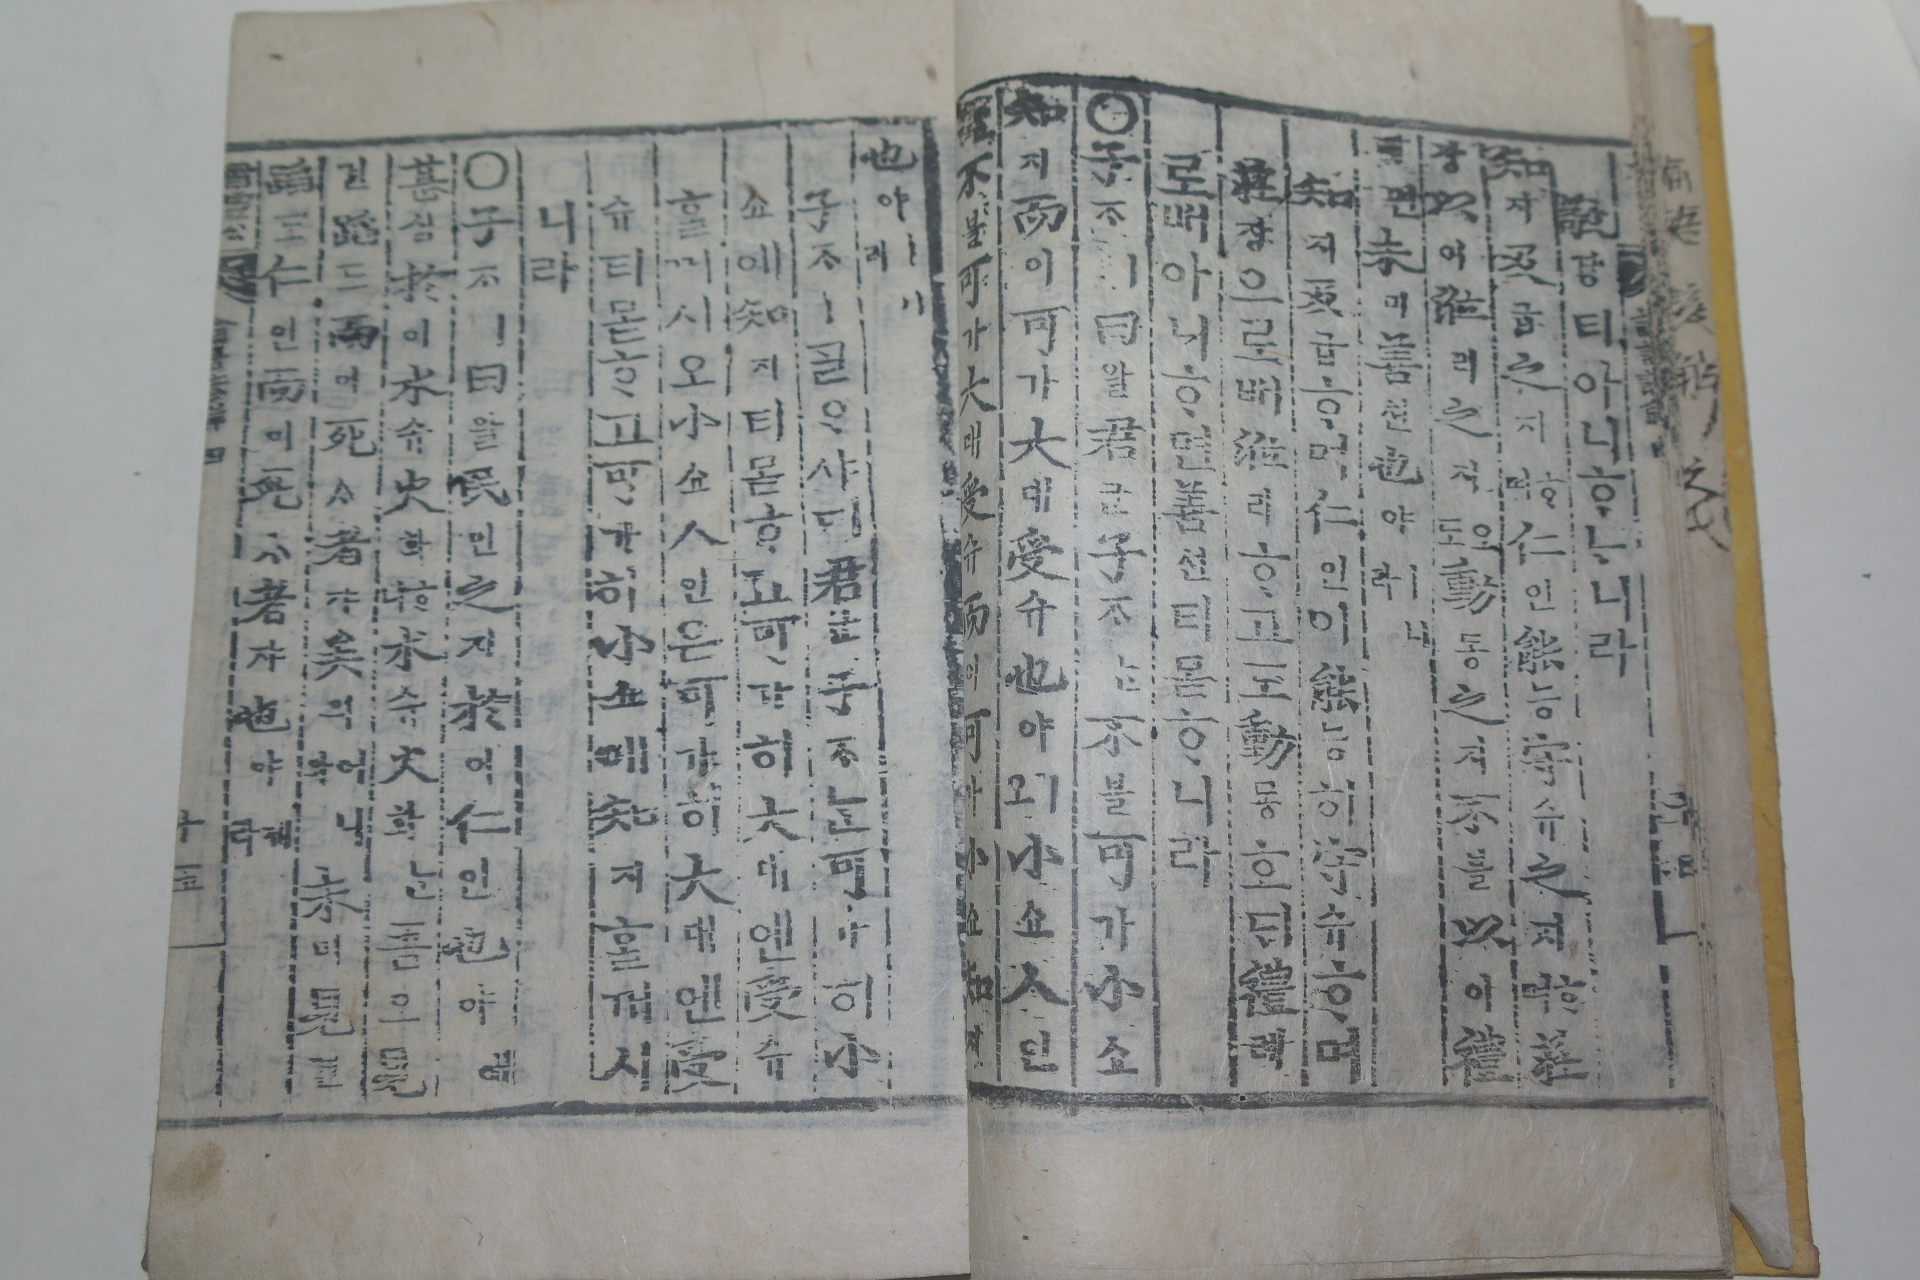 티아니ᄒᆞᄂᆞ니라
知지及급之지ᄒᆞ며仁인能능守슈之지ᄒᆞ며莊
장以이莊리之지ᄒᆞ오ᄃᆡ動동之지不블以이禮
례면未미善션也야ㅣ니라
知지及급ᄒᆞ며仁인이能능히守슈ᄒᆞ며
莊장으로ᄡᅥ莅리ᄒᆞ고도動동호ᄃᆡ禮례
로ᄡᅥ아니ᄒᆞ면善션티몯ᄒᆞ니라
○子ᄌᆞㅣ曰왈君군子ᄌᆞᄂᆞᆫ不블可가小쇼
知지而이可가大대受슈也야ㅣ오小쇼人인
不블可가大대受슈而이可가小쇼知지
也야ㅣ니라
子ᄌᆞㅣᄀᆞᆯᄋᆞ샤ᄃᆡ君군子ᄌᆞᄂᆞᆫ可가히小
쇼애知지티몯ᄒᆞ고可가히大대예受슈
ᄒᆞᆯ꺼시오小쇼人인은可가히大대예受
슈티몯ᄒᆞ고可가히小쇼애知지ᄒᆞᆯ꺼시
니라
○子ᄌᆞㅣ曰왈民민之지於어仁인也야애
甚심於어水슈火화ᄒᆞ니水슈火화ᄂᆞᆫ吾오見
견蹈도而이死ᄉᆞ者쟈矣의어니와未미見견
蹈도仁인而이死ᄉᆞ者쟈也야케라